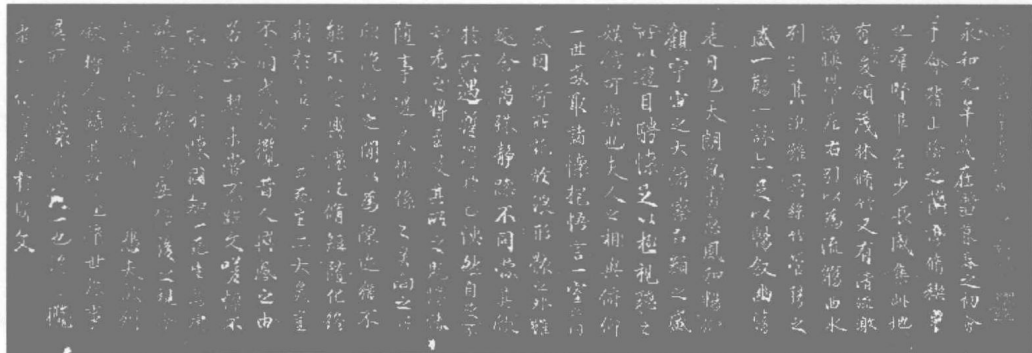 永和九年歲在癸丑暮春之初會
于會稽山陰之蘭亭脩禊事
也羣賢畢至少長咸集此地
有峻領茂林脩竹又有清流激
湍暎帶左右引以為流觴曲水
列坐其次雖無絲竹管弦之
盛一觴一詠亦足以暢敘幽情
是日也天朗氣清惠風和暢仰
觀宇宙之大俯察品類之盛
所以遊目騁懷足以極視聽之
娛信可樂也夫人之相與俯仰
一世或取諸懷抱悟言一室之內
或因寄所託放浪形骸之外雖
趣舍萬殊靜躁不同當其欣
於所遇蹔得於己快然自足不
知老之將至及其所之既惓情
隨事遷感慨係之矣向之所
欣俛仰之閒以為陳迹猶不
能不以之興懷況脩短隨化終
期於死生亦大矣豈
不痛哉攬昔人興感之由
若合一契未嘗不臨文嗟悼不
於懷固知一死生為
妄作後之視今
悲夫故列
敘時人錄其所述雖世殊事
異所懷一也後攬
者有感於斯文